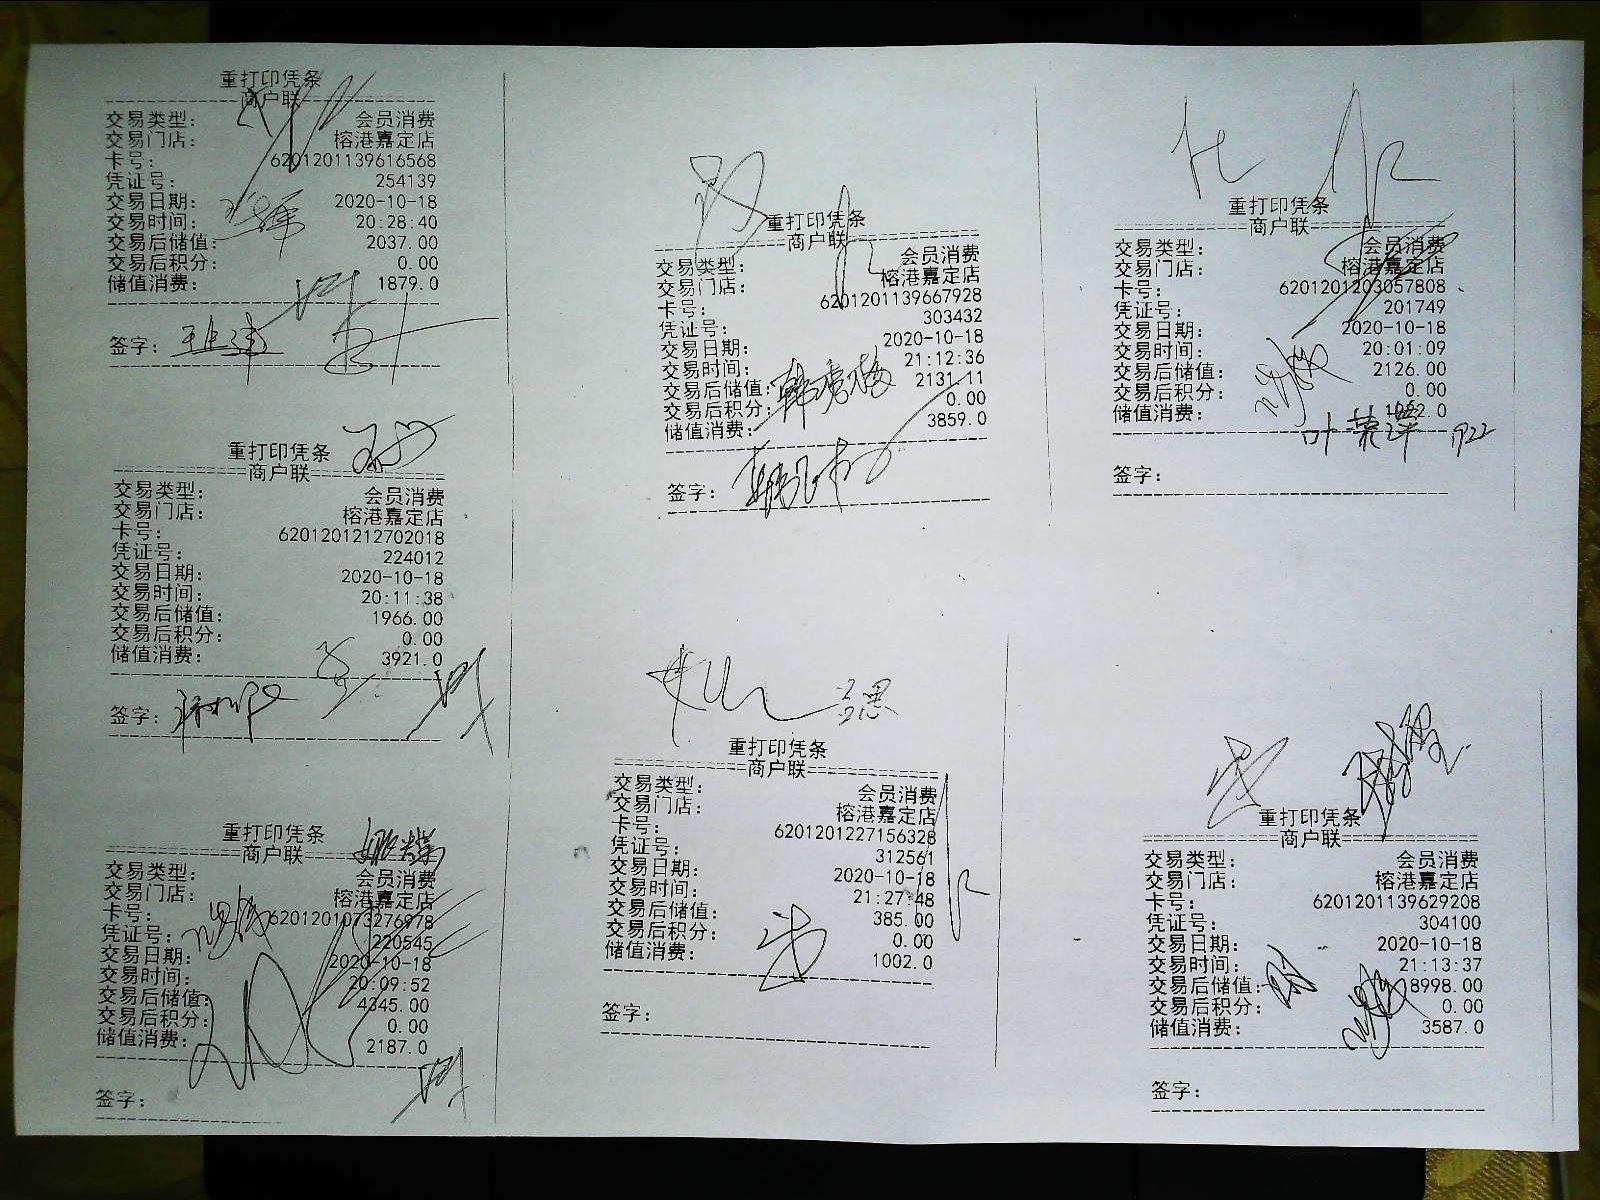 重打印凭条
商户联
交易类型: 会员消费
交易门店: 榕港嘉定店
卡号: 6201201139616568
凭证号: 254139
交易日期: 2020-10-18
交易时间: 20:28:40
交易后储值: 2037.00
交易后积分: 0.00
储值消费: 1879.0
签字:
重打印凭条
商户联
交易类型: 会员消费
交易门店: 榕港嘉定店
卡号: 6201201212702018
凭证号: 224012
交易日期: 2020-10-18
交易时间: 20:11:38
交易后储值: 1966.00
交易后积分: 0.00
储值消费: 3921.0
签字:
重打印凭条
商户联
交易类型: 会员消费
交易门店: 榕港嘉定店
卡号: 6201201073276978
凭证号: 220545
交易日期: 2020-10-18
交易时间: 20:09:52
交易后储值: 4345.00
交易后积分: 0.00
储值消费: 2187.0
签字:
重打印凭条
商户联
交易类型: 会员消费
交易门店: 榕港嘉定店
卡号: 6201201139667928
凭证号: 303432
交易日期: 2020-10-18
交易时间: 21:12:36
交易后储值: 2131.11
交易后积分: 0.00
储值消费: 3859.0
签字:
重打印凭条
商户联
交易类型: 会员消费
交易门店: 榕港嘉定店
卡号: 6201201227156328
凭证号: 312561
交易日期: 2020-10-18
交易时间: 21:27:48
交易后储值: 385.00
交易后积分: 0.00
储值消费: 1002.0
签字:
重打印凭条
商户联
交易类型: 会员消费
交易门店: 榕港嘉定店
卡号: 6201201203057808
凭证号: 201749
交易日期: 2020-10-18
交易时间: 20:01:09
交易后储值: 2126.00
交易后积分: 0.00
储值消费:
叶荣 1922
签字:
重打印凭条
商户联
交易类型: 会员消费
交易门店: 榕港嘉定店
卡号: 6201201139629208
凭证号: 304100
交易日期: 2020-10-18
交易时间: 21:13:37
交易后储值: 8998.00
交易后积分: 0.00
储值消费: 3587.0
签字: